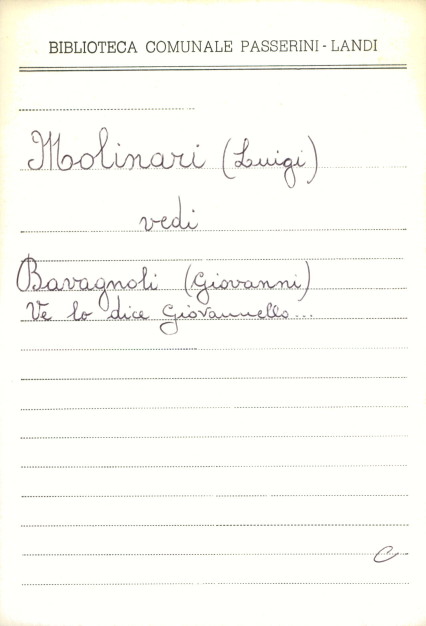 BIBLIOTECA COMUNALE PASSERINI - LANDI
Molinari (Luigi)
vedi
Bavagnoli (Giovanni)
Ve lo dice Giovannello...
C